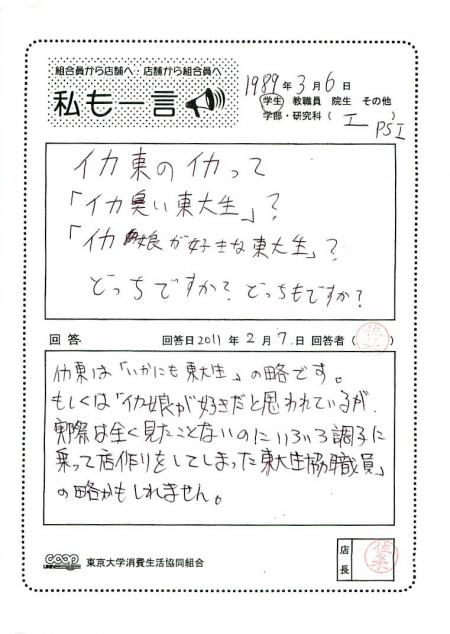 組合員から店舗へ・店舗から組合員へ
私も一言
1989年3月6日
学生 教職員 院生 その他
学部・研究科(I PSI )
イカ東のイカって
「イカ臭い東大生」?
「イカ娘が好きな東大生」?
どっちですか?どっちもですか?
回答 回答日2011年2月7日 回答者( )
イカ東は「いかにも東大生」の略です。
もしくは「イカ娘が好きだと思われているが、
実際は全く見たことないのにいろいろ調子に
乗って店作りをしてしまった東大生協職員」
の略かもしれません。
coop
UNIV
東京大学消費生活協同組合
店長